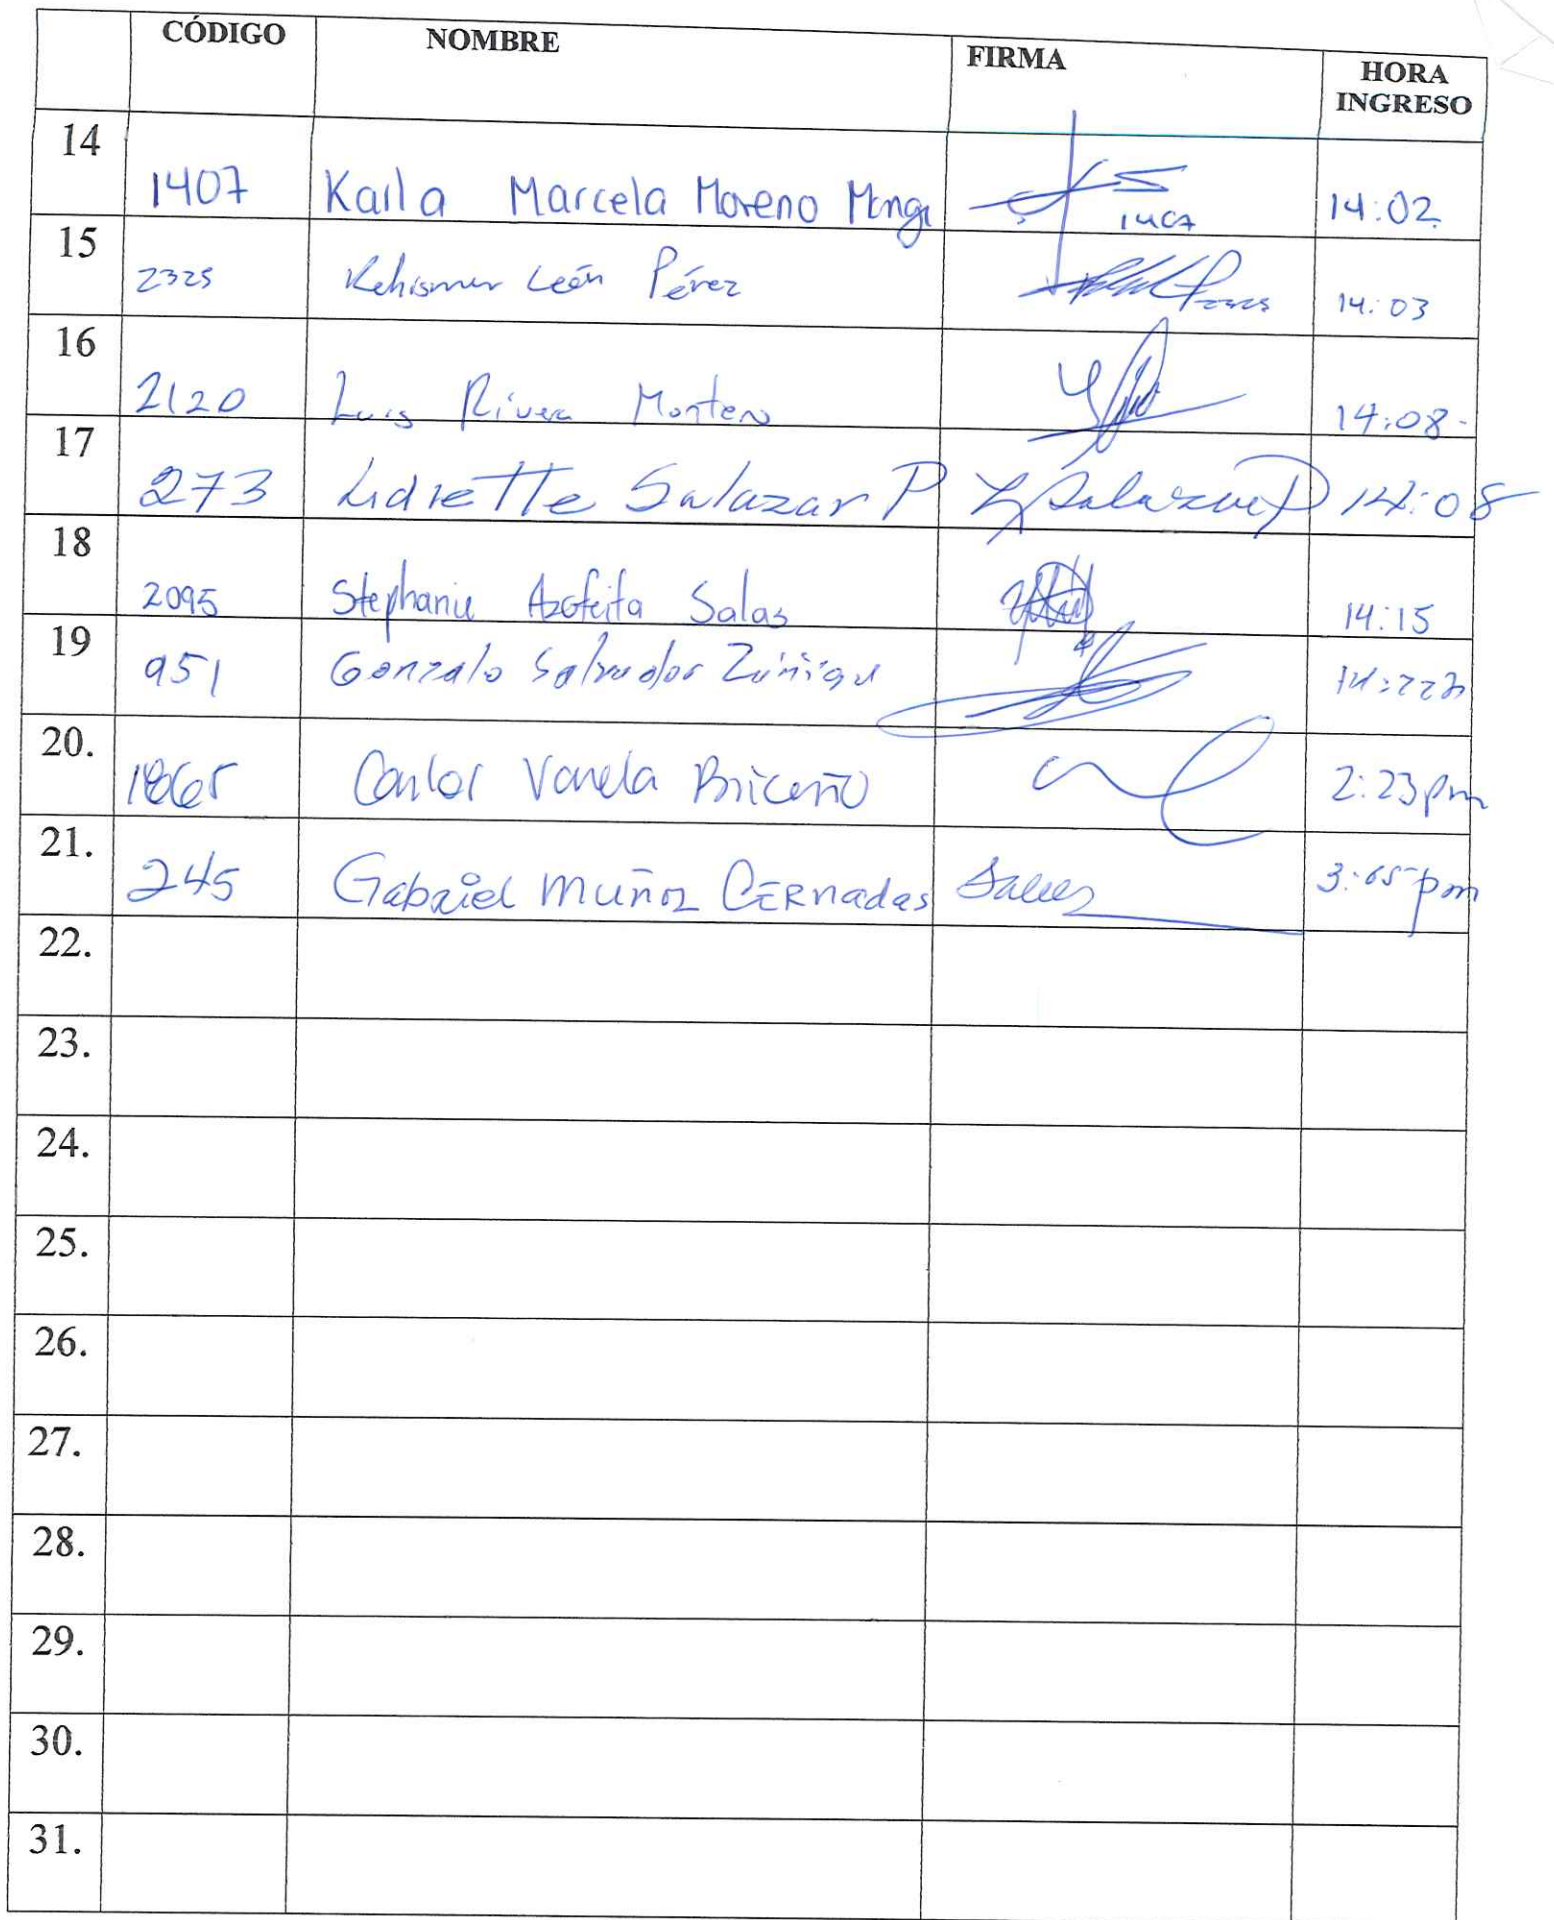 CÓDIGO NOMBRE FIRMA HORA INGRESO
14 1407 Karla Marcela Moreno Monge 1407 14:02
15 2325 León Pérez 14:03
16 2120 Luis Rivera Montero 14:08
17 273 Salazar P 14:08
18 2095 Stephanie Azofeifa Salas 14:15
19 951 Gonzalo Salvador Zúñiga
20. 1865 Carlos Varela Briceño 2:23pm
21. 245 Gabriel Muñoz CERNadas 3:05 pm
22.
23.
24.
25.
26.
27.
28.
29.
30.
31.